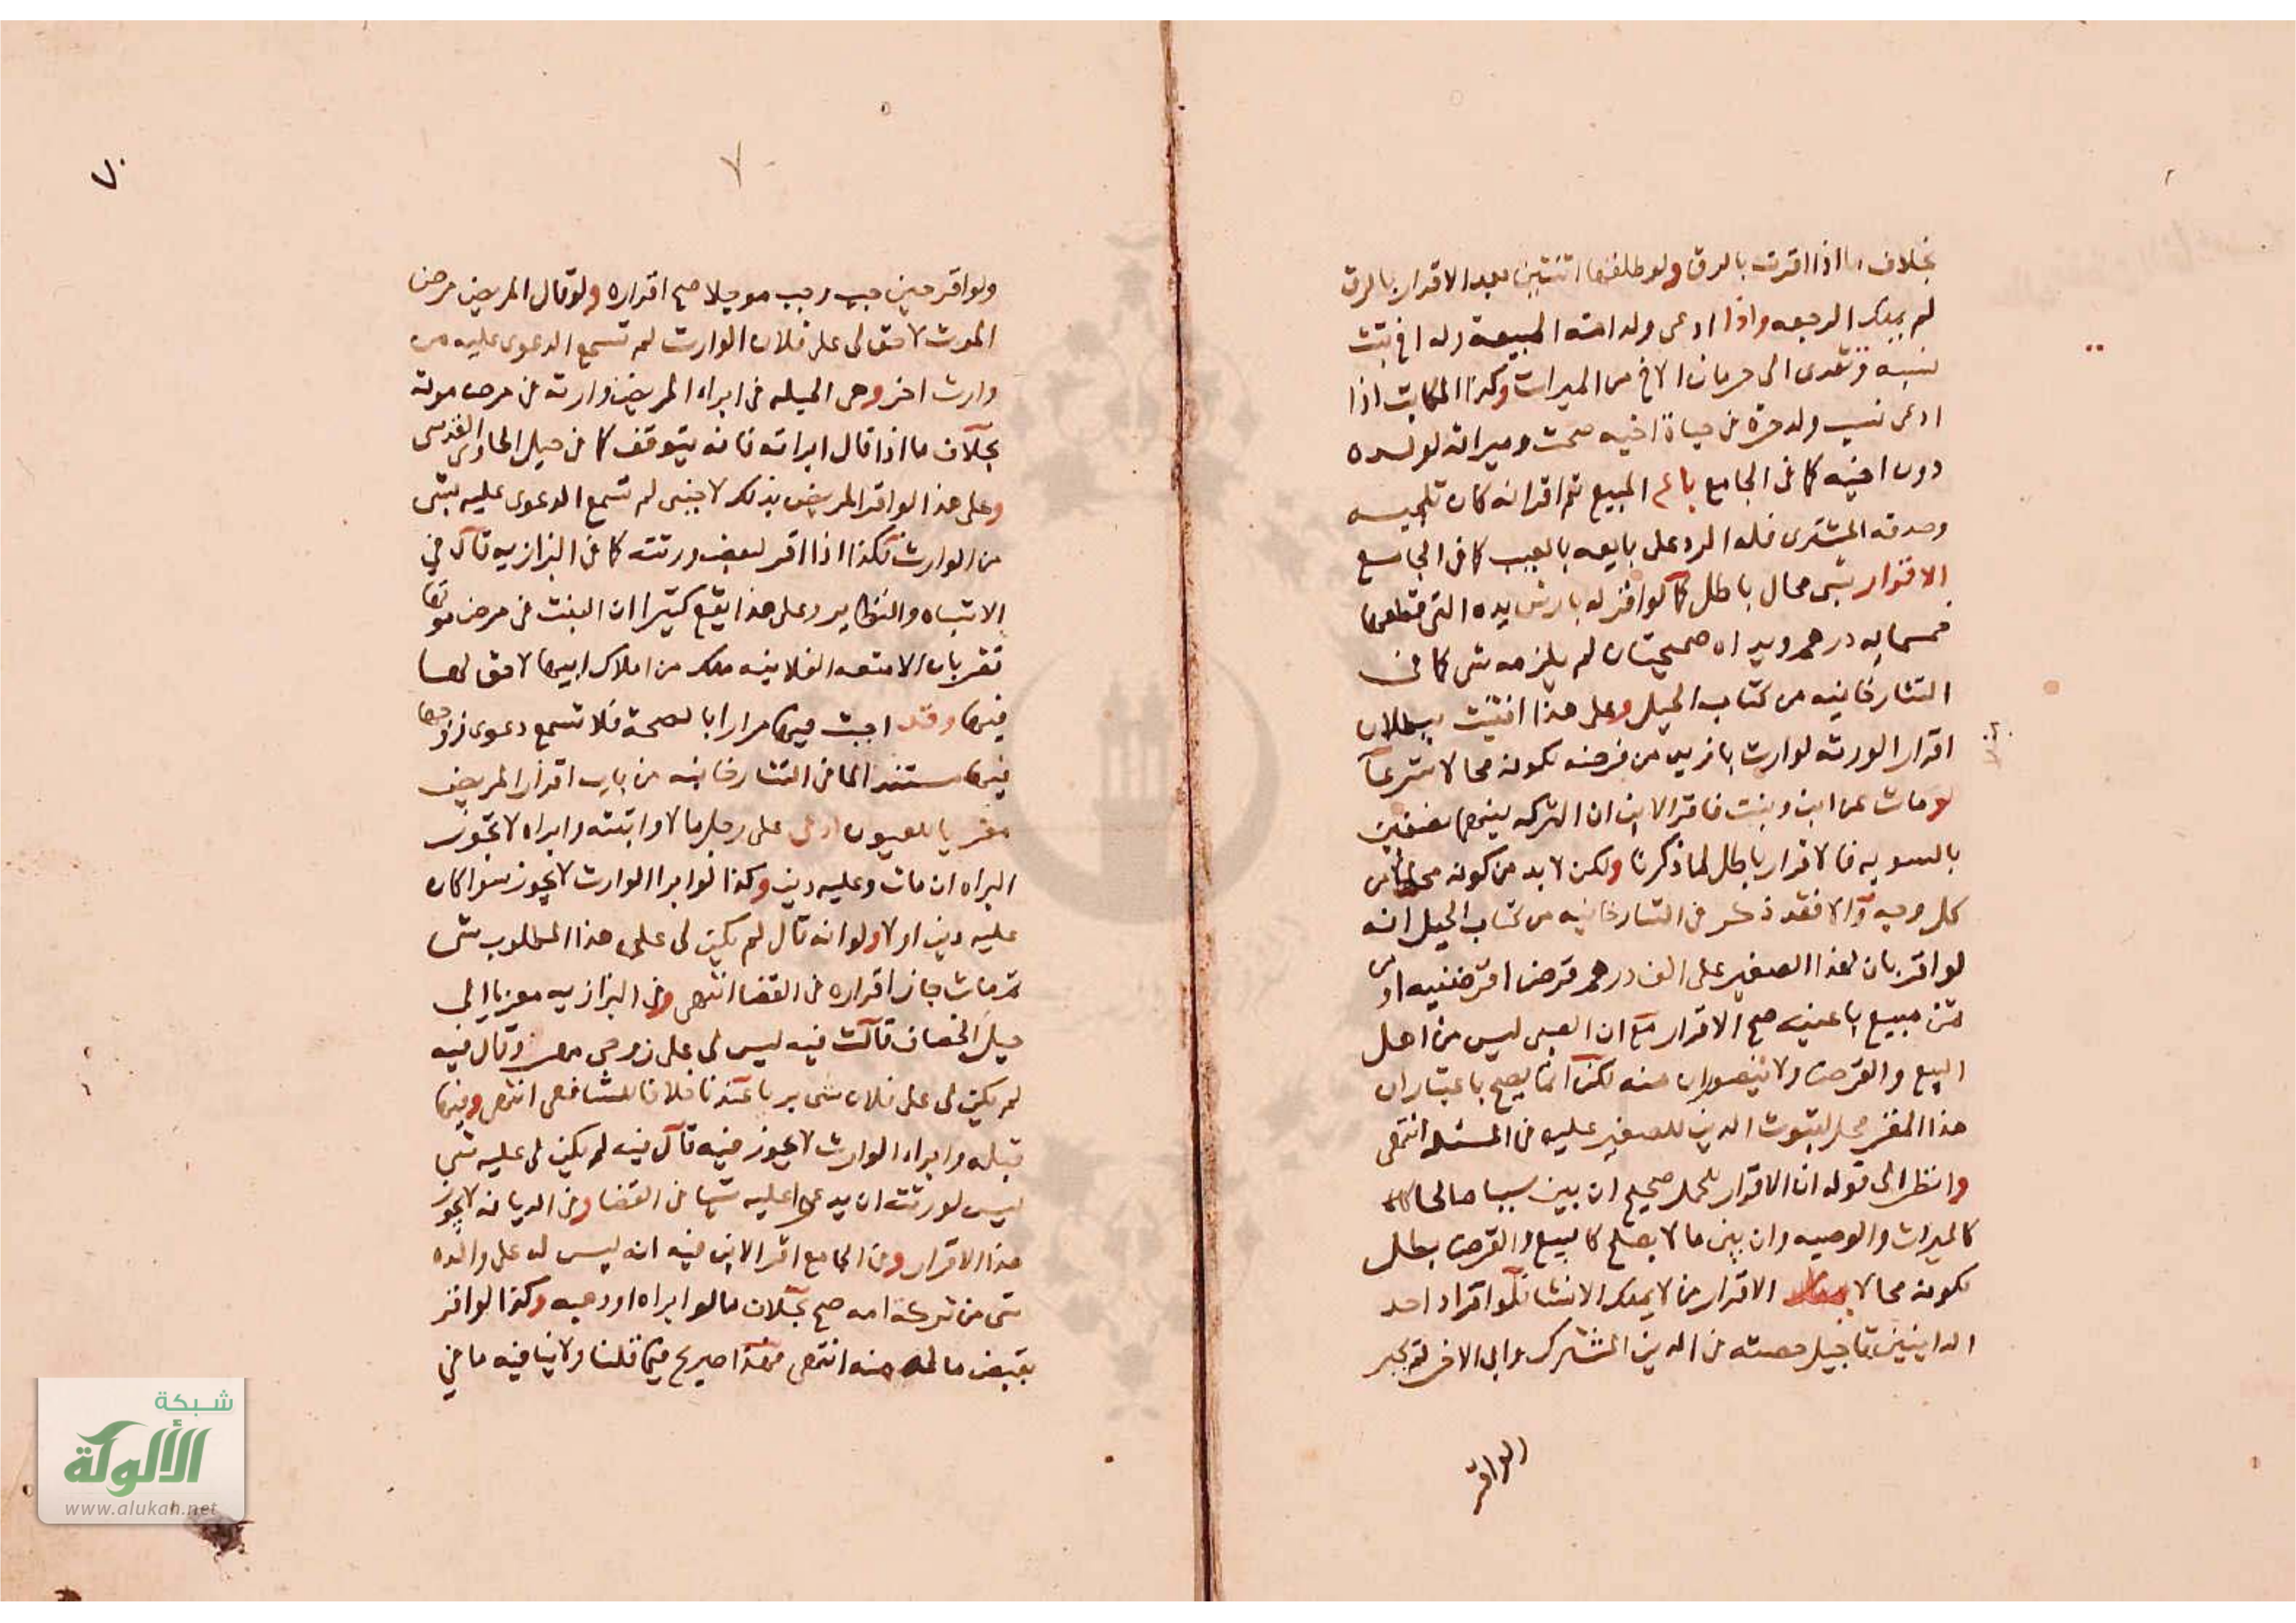 بخلاف ما اذا اقرت بالرق ولو طلقها اثنتين بعد الاقرار بالرق
لم يملك الرجعه واذا ادعى ولد امته المبيعة وله اخ ثبت
نسبه وتعدى الى حرمان الاخ من الميراث وكذا المكاتب اذا
ادعى نسب ولد حرة في حياة اخيه صحت وميراثه لولده
دون اخيه كما في الجامع باع المبيع ثم اقر انه كان تلجيه
وصدقه المشترى فله الرد على بايعه بالعيب كما في الجامع
الاقرار بشى محال باطل كما لو اقر له بارش يده التي قطعها
خمسمايه درهم ويداه صحيحتان لم يلزمه شى كما في
التتارخانيه من كتاب الحيل وعلى هذا افتيت ببطلان
اقرار الورثه لوارث بازيد من فرضه لكونه محالا شرعا
لو مات عن ابن وبنت فاقر الابن ان التركه بينهما نصفين
بالسويه فالاقرار باطل لما ذكرنا ولكن لا بد من كونه محالا من
كل وجه والا فقد ذكر في التتارخانيه من كتاب الحيل انه
لو اقر بان لهذا الصغير على الف درهم قرض اقرضنيه او من
ثمن مبيع باعنيه صح الاقرار مع ان الصبى ليس من اهل
البيع والقرض ولا يتصوران منه لكن انما يصح باعتبار ان
هذا المقر محل لثبوت الدين للصغير عليه في المسئله انتهى
وانظر الى قوله ان الاقرار للحمل صحيح ان بين سببا صالحا
كالميراث والوصيه وان بين ما لا يصلح كالبيع والقرض بطل
لكونه محالا الاقرار من لا يملك الانشا فلو اقر احد
الداينين بتاجيل حصته في الدين المشترك وابى الاخر لم يجز
ولو اقر
٧٠
ولو اقر حين وجب وجب موجلا صح اقراره ولو قال المريض مرض
الموت لا حق لى على فلان الوارث لم تسمع الدعوى عليه من
وارث اخر وهى الحيله في ابراء المريض وارثه في مرض موته
بخلاف ما اذا قال ابراته فانه يتوقف كما في حيل الحاوى القدسى
وعلى هذا لو اقر المريض بذلك لاجنبى لم تسمع الدعوى عليه بشى
من الوارث فكذا اذا اقر لبعض ورثته كما في البزازيه قال في
الاشباه والنظاير وعلى هذا يقع كثيرا ان البنت في مرض موتها
تقر بان الامتعه الفلانيه ملك من املاك ابيها لا حق لها
فيها وقد اجبت فيها مرارا بالصحة فلا تسمع دعوى زوجها
فيها مستندا لما في التتارخانيه من باب اقرار المريض
معزيا للعيون ادعى على رجل مالا واثبته وابراه لا تجوز
البراه ان مات وعليه دين وكذا لو ابرا الوارث لا يجوز سوا كان
عليه دين او لا ولو انه قال لم يكن لى على هذا المطلوب شى
ثم مات جاز اقراره في القضا انتهى وفي البزازيه معزيا الى
حيل الخصاف قالت فيه ليس لى على زوجى مهر وقال فيه
لم يكن لى على فلان شى يبرا عندنا خلافا للشافعى انتهى وفيها
قبله وابراء الوارث لا يجوز فيه قال فيه لم يكن لى عليه شى
ليس لورثته ان يدعوا عليه شيا في القضا وفي الديانه لا يجوز
هذا الاقرار وفي الجامع اقر الابن فيه انه ليس له على والده
شى من تركه امه صح بخلاف ما لو ابراه او وهبه وكذا لو اقر
بقبض ماله منه انتهى فهذا صريح فيما قلنا ولا ينافيه ما في
شبكة
الألوكة
www.alukah.net